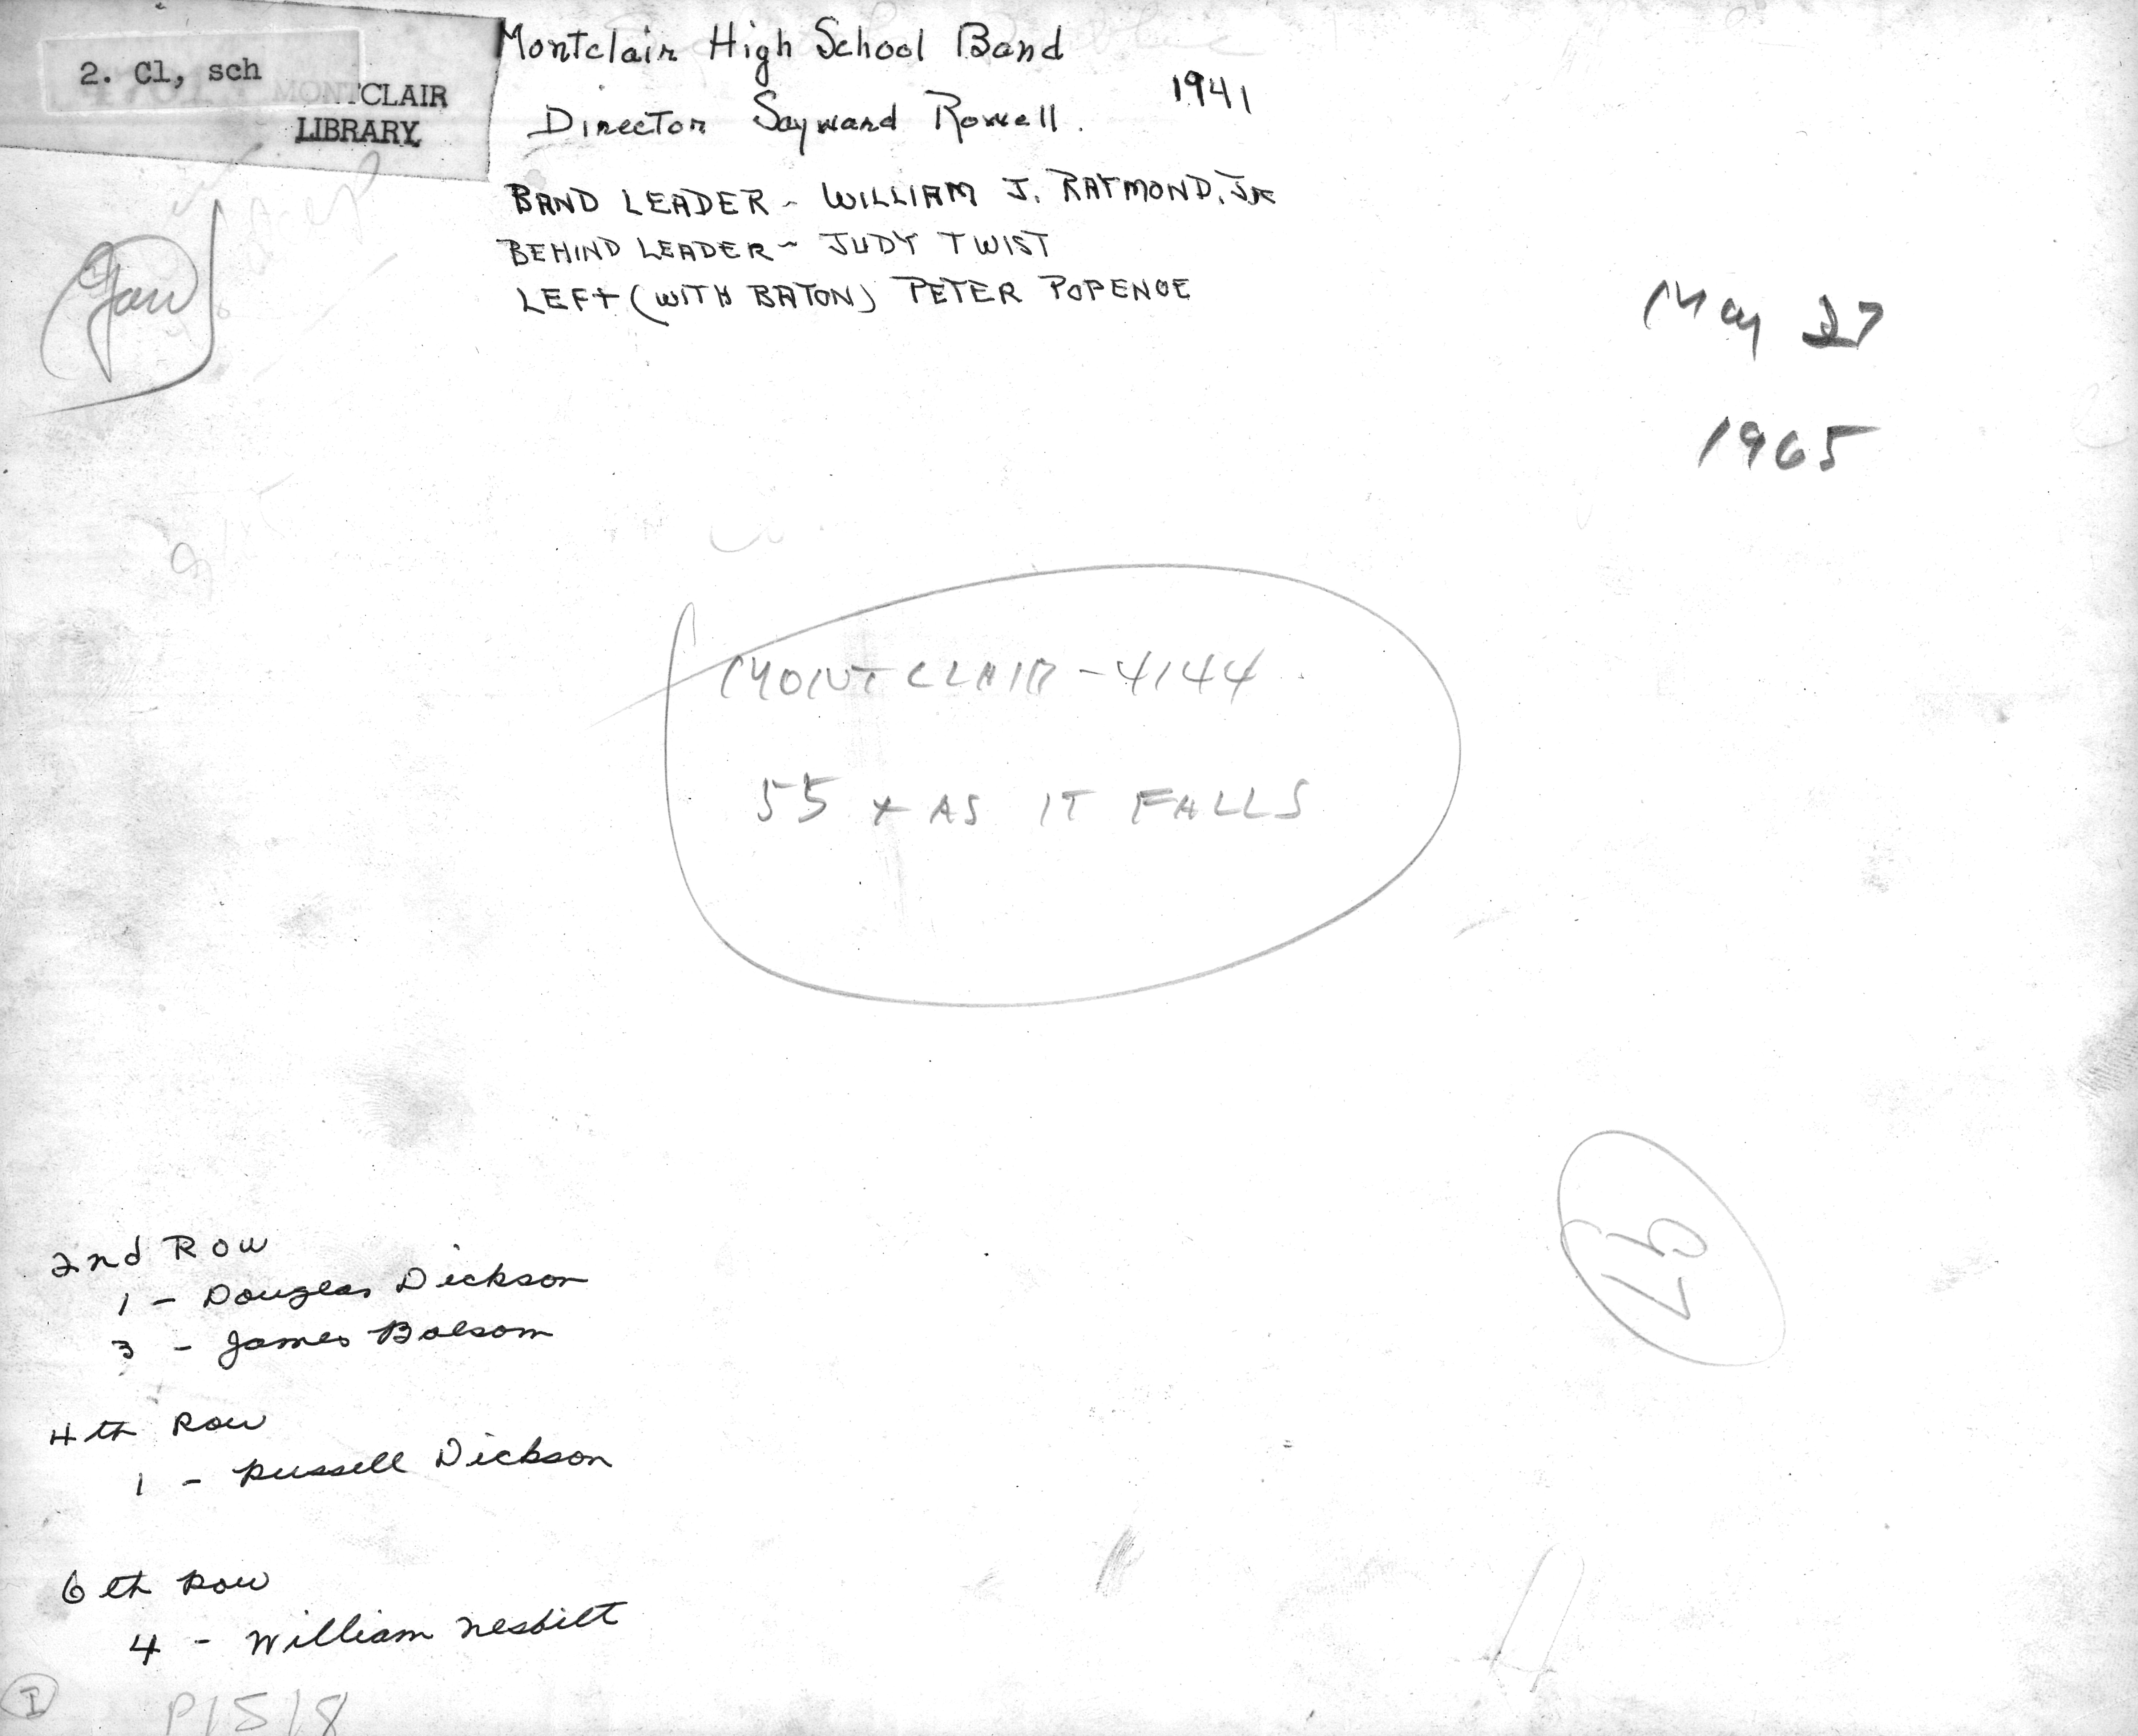 2. Cl, sch
MONTCLAIR
LIBRARY
Montclair High School Band
1941
Director Sayward Rowell.
BAND LEADER - WILLIAM J. RAYMOND, JR
BEHIND LEADER - JUDY TWIST
LEFT (WITH BATON) PETER POPENOE
May 27
1965
MONTCLAIR - 4144
55 x AS IT FALLS
2nd Row
1 - Douglas Dickson
3 - James Balsom
4th Row
1 - Russell Dickson
6th Row
4 - William Nesbitt
I
P1518